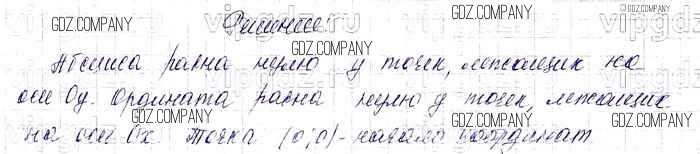 Решение:
Абсциса равна нулю у точек, лежащих на
оси Оy. Ордината равна нулю у точек, лежащих
на оси Ох. Точка (0;0) - начало координат
GDZ.COMPANY
GDZ.COMPANY
GDZ.COMPANY
GDZ.COMPANY
GDZ.COMPANY
GDZ.COMPANY
GDZ.COMPANY
GDZ.COMPANY
©GDZ.COMPANY
vipgdz
vipgdz